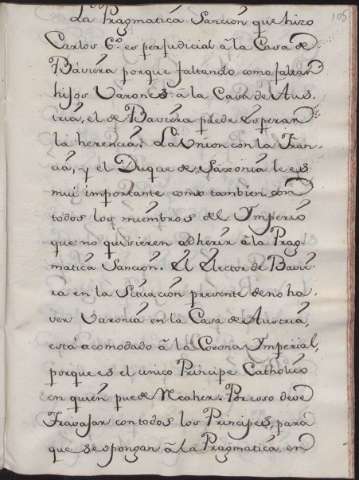 105
La Pragmatica Sancion que hizo
Carlos 6.º es perjudicial â la Casa de
Baviera porque faltando como faltan
hijos Varones â la Casa de Aus-
tria, el de Baviera puede esperar
la herencia. La Union con la Fran-
cia, y el Duque de Saxonia le es
mui importante como tambien con
todos los miembros del Imperio
que no quisieren adherir â la Prag-
matica Sancion. El Elector de Bavie-
ra en la Situacion presente de no ha-
ver Varonia en la Casa de Austria,
està acomodado â la Corona Imperial,
porque es el unico Principe Catholico
en quien puede Recaher. Por eso deve
travajar con todos los Principes, para
que se opongan â la Pragmatica en